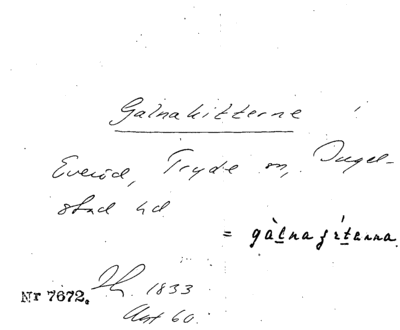 Galnakitterne
Everöd, Tryde sn, Ingel-
stad hd
= gàlnaʃítenna
1833
Nr 7672.
Akt 60.